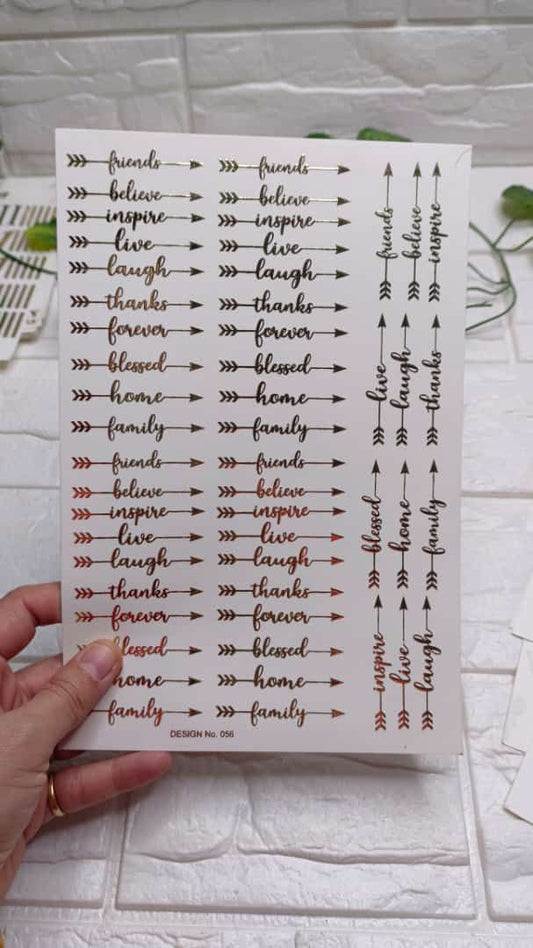 friends friends
believe believe
inspire inspire
live live
laugh laugh
thanks thanks
forever forever
blessed blessed
home home
family family
friends friends
believe believe
inspire inspire
live live
laugh laugh
thanks thanks
forever forever
blessed blessed
home home
family family
DESIGN No. 056
friends
believe
inspire
live
laugh
thanks
blessed
home
family
inspire
live
laugh